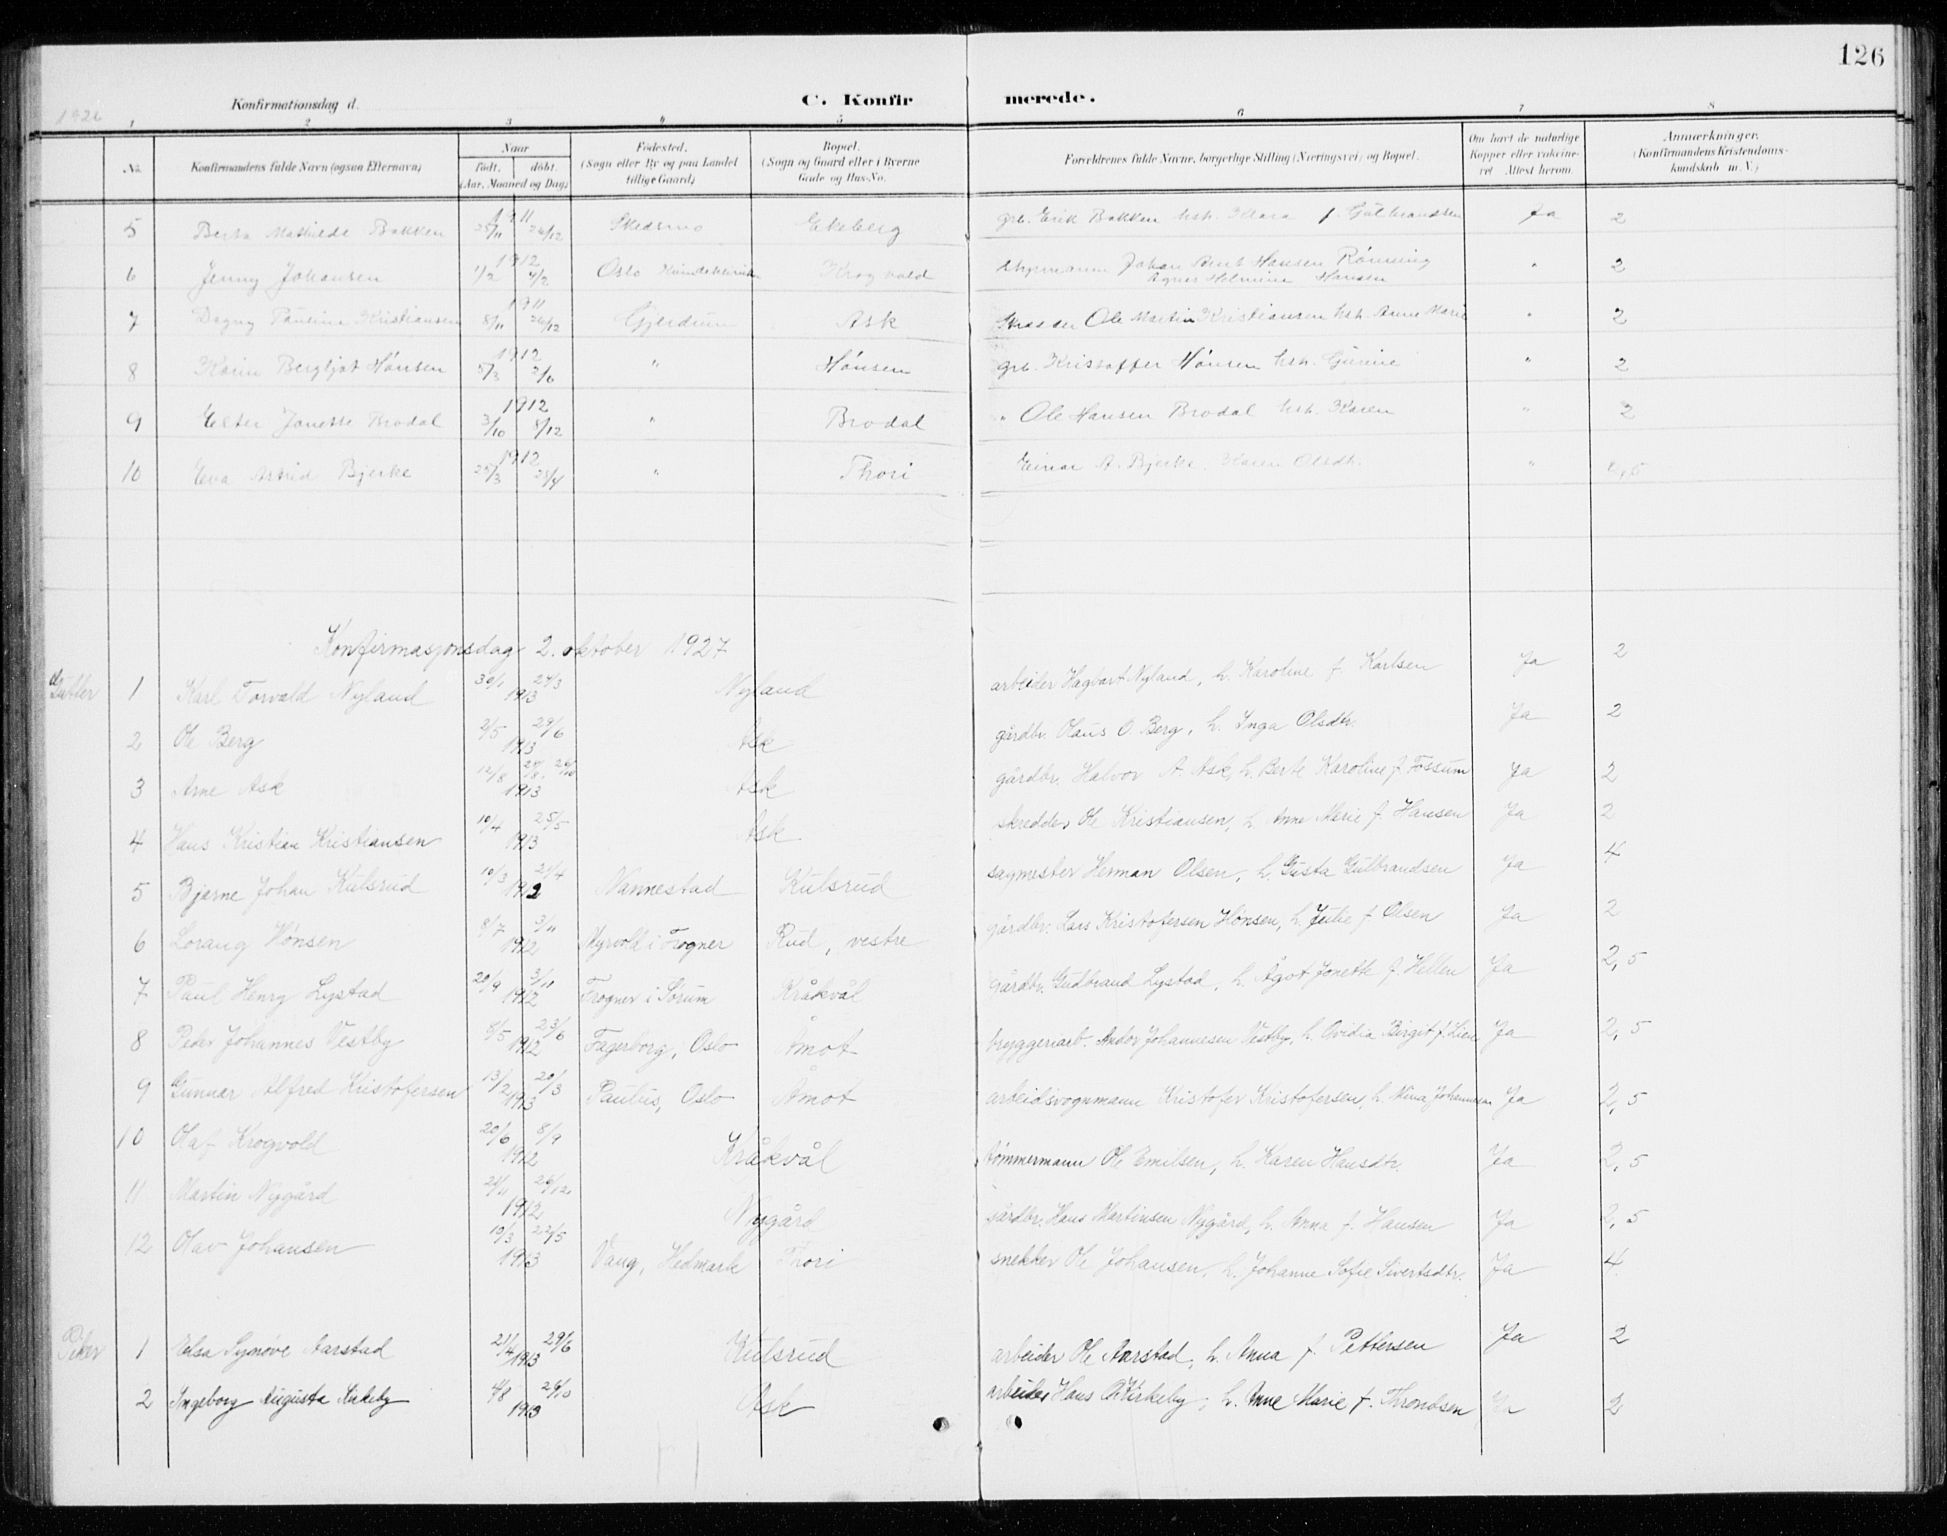 126
1926
Konfirmationsdag d.
C. Konfirmerede.
1 2 3 4 5 6 7 8
No. Konfirmandens fulde Navn (ogsaa Efternavn) Naar født. døbt. (Aar, Maaned og Dag) Fødested. (Sogn eller By og paa Landet tillige Gaard) Bopæl. (Sogn og Gaard eller i Byerne Gade og Hus-No. Forældrenes fulde Navne, borgerlige Stilling (Næringsvei) og Bopæl. Om havt de naturlige Kopper eller vakcineret. Attest herom. Anmærkninger. (Konfirmandens Kristendomskundskab m. V.)
5 Berta Mathilde Bakken 1911 25/11 26/12 Skedsmo Ekeberg grb. Erik Bakken hst. Klara f. Gulbrandsen Ja 2
6 Jenny Johansen 1912 1/2 4/2 Oslo Krogvold Johan Hansen Rønning Agnes Helmine Hansen " 2
7 Dagny Pauline Kristiansen 1911 8/11 26/12 Gjerdrum Ask Skræder Ole Martin Kristiansen hst. Anne Marie " 2
8 Karin Bergljot Hønsen 1912 5/3 2/6 " Hønsen grb. Kristoffer Hønsen hst. Gurine " 2
9 Ester Jonette Brodal 1912 3/10 8/12 " Brodal " Ole Hansen Brodal hst. Karen " 2
10 Eva Astrid Bjerke 1912 25/3 28/4 " Thori Einar A. Bjerke, Karen Olsdt. "
Konfirmasjonsdag 2. oktober 1927
Gutter 1 Karl Torvald Nyland 30/1 24/3 1913 Nyland arbeider Hagbart Nyland, h. Karoline f. Karlsen Ja 2
2 Ole Berg 2/5 29/6 1913 Ask gårdbr. Olaus O. Berg, h. Inga Olsdtr. Ja 2
3 Arne Ask 12/8 26/10 1913 Ask gårdbr. Halvor A. Ask, h. Berte Karoline f. Fossum Ja 2
4 Hans Kristian Kristiansen 10/4 25/5 1913 Ask skredder Ole Kristiansen, h. Anne Marie f. Hansen Ja 2
5 Bjarne Johan Kulsrud 10/3 21/4 1912 Nannestad Kulsrud sagmester Herman Olsen, h. Gusta Gulbrandsen Ja 4
6 Lorang Hønsen 8/7 3/11 1912 Myrvold i Frogner Rud, vestre gårdbr. Lars Kristofersen Hønsen, h. Julie f. Olsen Ja 2
7 Paul Henry Lystad 20/9 3/11 1912 Frogner i Sørum Kråkvål gårdbr. Gudbrand Lystad, h. Ågot Jonette f. Hellen Ja 2,5
8 Peder Johannes Vestby 5/5 23/6 1912 Fagerborg, Oslo Åmot bryggeriarb. Andor Johannesen Vestby, h. Ovidia Birgit f. Lien Ja 2,5
9 Gunnar Alfred Kristofersen 13/2 20/3 1913 Paulus, Oslo Åmot arbeidsvognmann Kristofer Kristofersen, h. Mina Johannesen Ja 2,5
10 Olaf Krogvold 20/6 8/9 1912 Kråkvål tømmermann Ole Emilsen, h. Karen Hansdtr. Ja 2,5
11 Martin Nygård 21/11 26/12 1912 Nygård gårdbr. Hans Martinsen Nygård, h. Anna f. Hansen Ja 2,5
12 Olav Johansen 10/3 22/5 1913 Vang, Hedmark Thori snekker Ole Johansen, h. Johanne Sofie Sivertsdtr. Ja 4
Piker 1 Elsa Synøve Aarstad 21/4 29/6 1913 Kulsrud arbeider Ole Aarstad, h. Anna f. Pettersen Ja 2
2 Ingeborg Augusta Kirkeby 4/8 26/10 1913 Ask arbeider Hans Kirkeby, h. Anne Marie f. Throndsen Ja 2